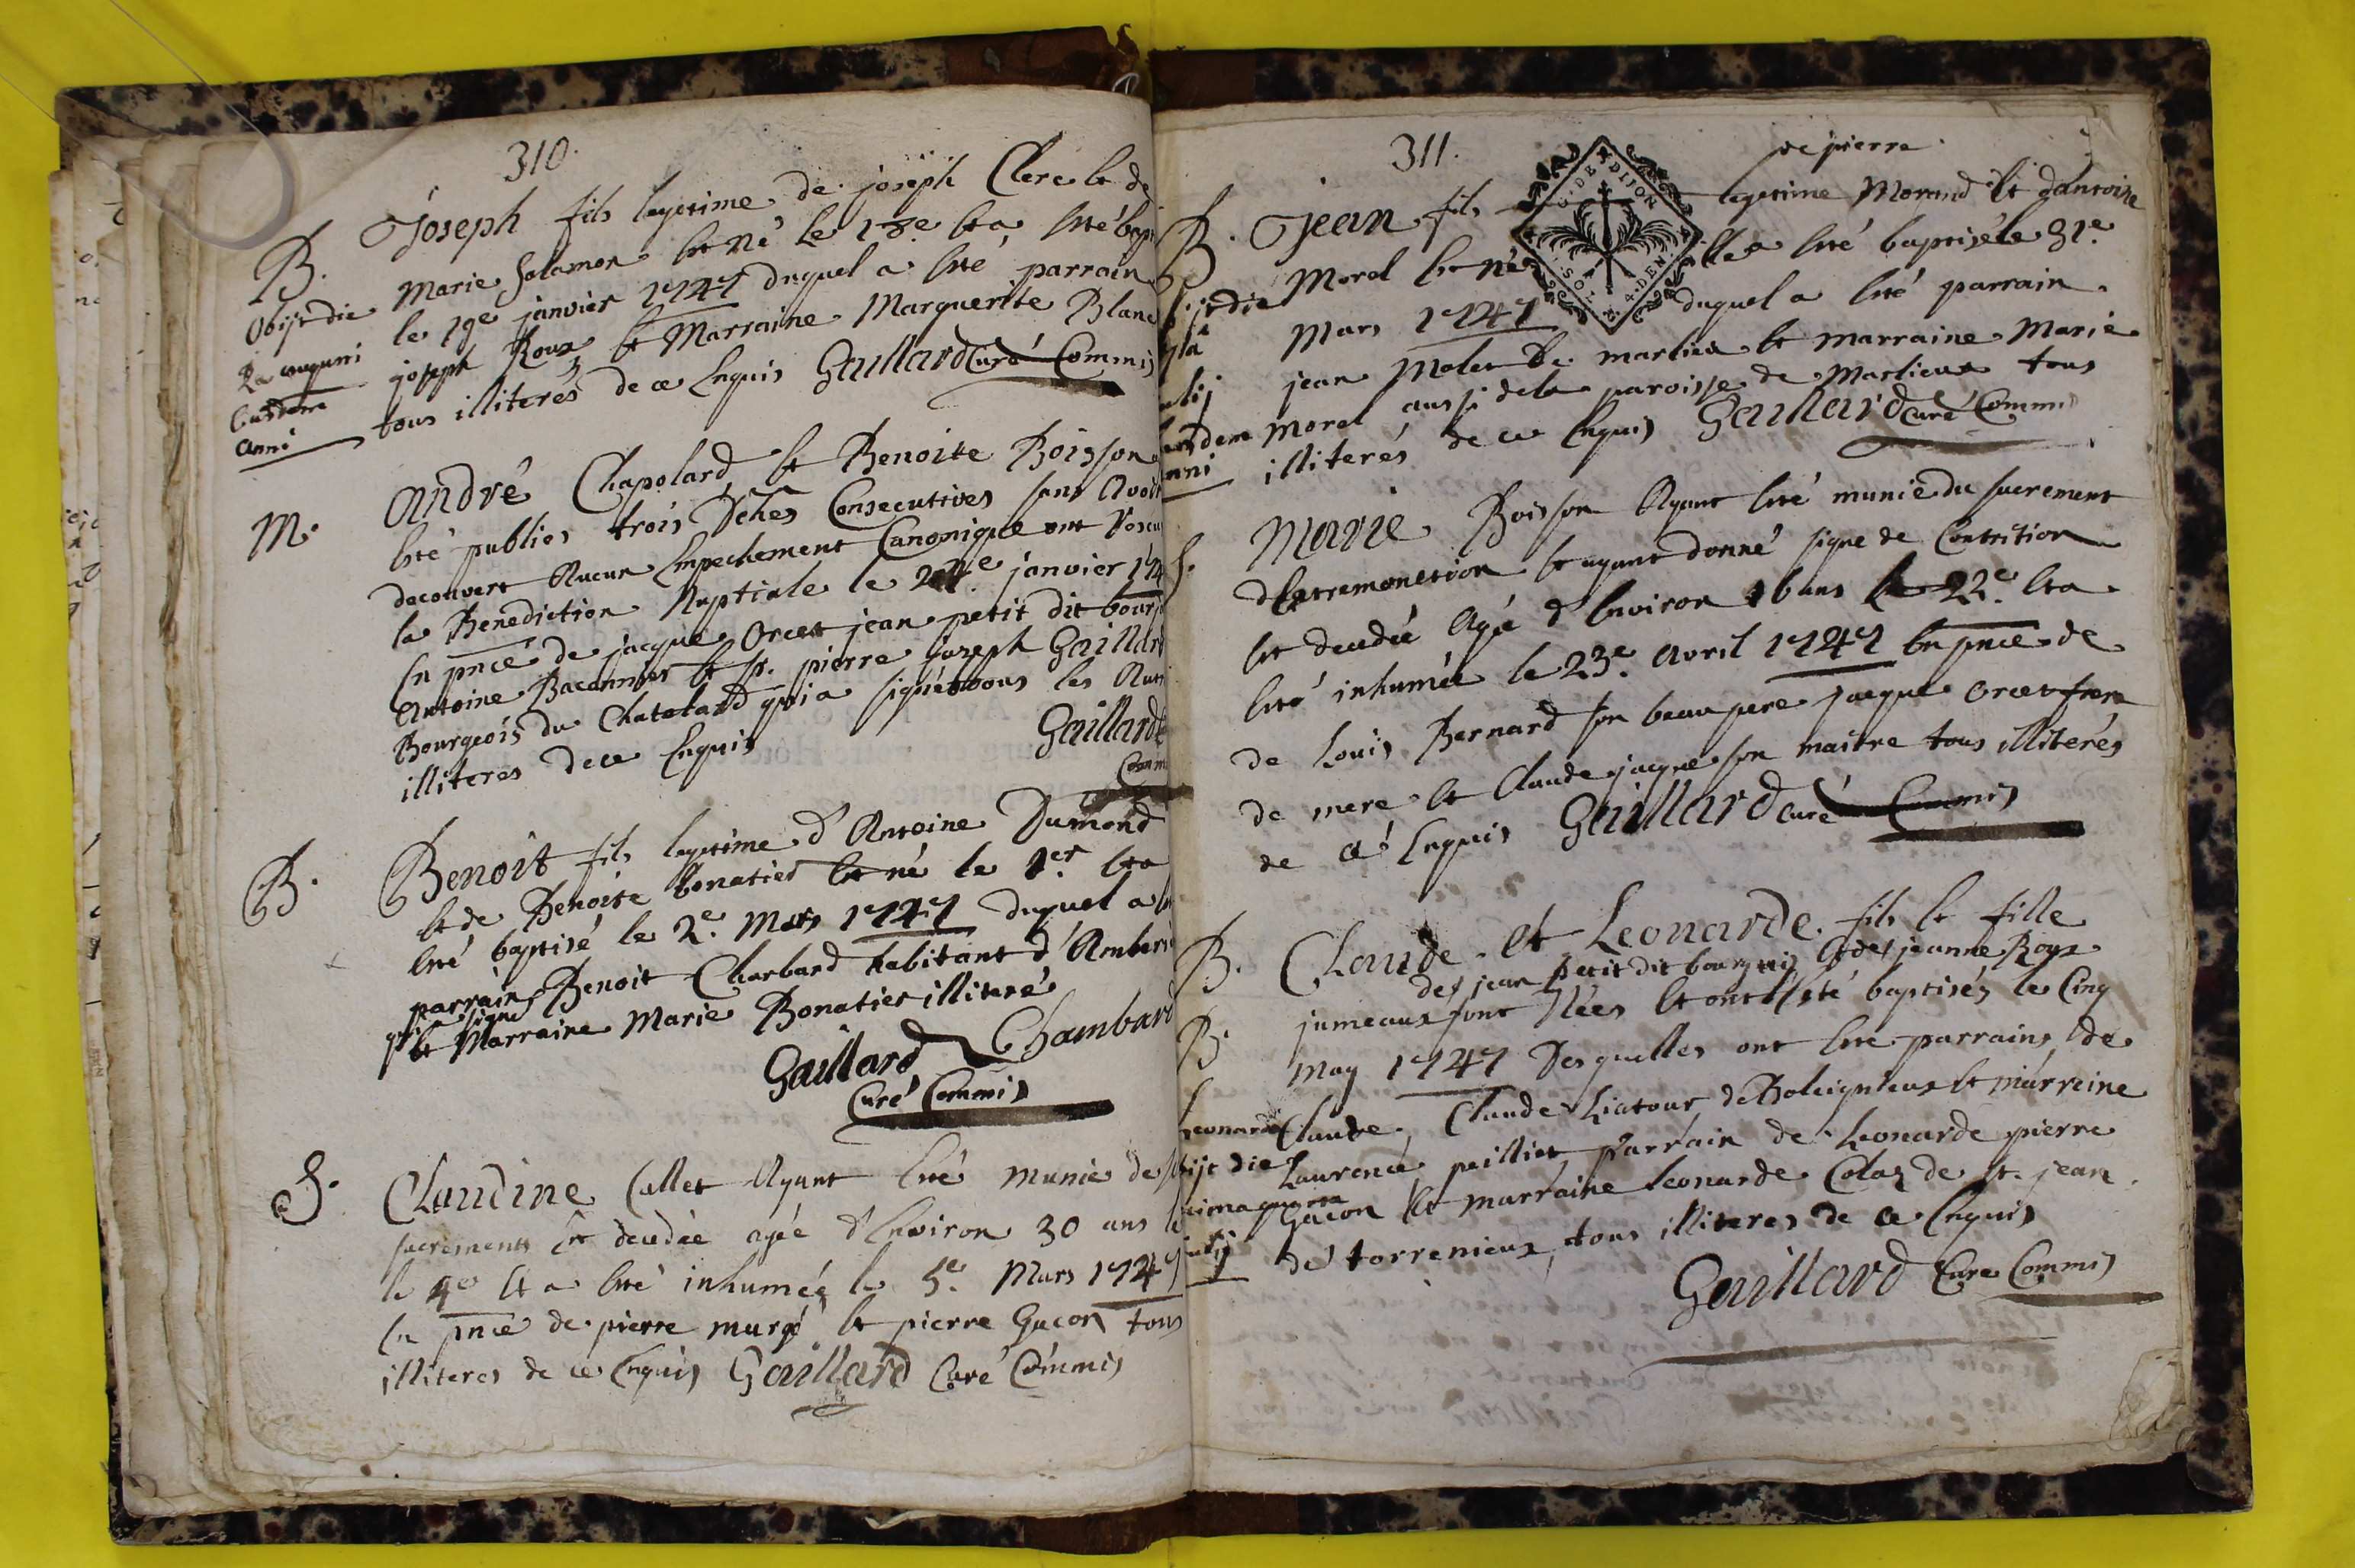 310.
B. Joseph fils legetime de joseph Clerc et de
Marie Salamon et né le 18e et a eté bapt
le 19e janvier 1747 duquel a eté parrain
joseph Roux et Marraine Marguerite Blanc
tous illiterés de ce enquis Gaillard Curé Commis
Obijt die
2a augusti
Eusdem
anni
M. André Chapolard et Benoite Boisson
eté publiés trois Dches Consecutives sans avoir
decouvert Aucun Empechement Canonique ont
la Benediction Nuptiale le janvier 174
En pnce de jacque Orcet jean petit dit bourg
Antoine Baconnier et Sr. pierre joseph Gaillard
Bourgeois du Chatelard qui a signé tous les Autr
illiteres de ce Enquis Gaillard
Comm
B. Benoit fils legetime d'Antoine Dumond
et de Benoite bonatier et né le 1er. et a
eté baptisé le 2e. Mars 1747 duquel a
parrain Benoit Charbard habitant d'Amberi
qui a signé
et Marraine Marie Bonatier illiteré
Gaillard Chambard
Curé Commis
S. Claudine Callet Ayant eté munie de
sacrements est decedée agée d'Environ 30 ans
le 4e et a eté inhumée le 5e. Mars 1747
En pnce de pierre murgé et pierre Gacon tous
illiteres de ce Enquis Gaillard Curé Commis
311.
de pierre
B. Jean fils legetime Morand et dantoine
G. DE DIJON
SOL. 4. DEN.
Morel et né a eté baptisé le 31e.
Mars 1747 duquel a eté parrain
jean de marlieu et marraine Marie
Morel aussi de la paroisse de Marlieux tous
illiterés de ce Enquis Gaillard Curé Commis
die
anni
S. Marie Boisson Ayant eté munie du sacrement
dExtremonction et ayant donné signe de Contrition
est decedée Agée d'Environ ans le 22e. et a
eté inhumée le 23e. Avril 1747 En pnce de
de Louis Bernard son beau pere jacque Orcet frere
de mere et Claude jacque son maitre tous illiterés
de ce Enquis Gaillard Curé Commis
B. Claude et Leonarde fils et fille
de jean petit dit bourgeois et de jeanne Roux
B. jumeaux sont Nées et ont eté baptisés le Cinq
May 1747 Desquelles ont eté parrains de
Claude, Claude Liatour de Boleigneux et marreine
Laurence peillier Parrain de Leonarde pierre
Gacon et marraine Leonarde Colas de St. jean
de torrenieux, tous illiteres de ce Enquis
Gaillard Curé Commis
Leonarde
die